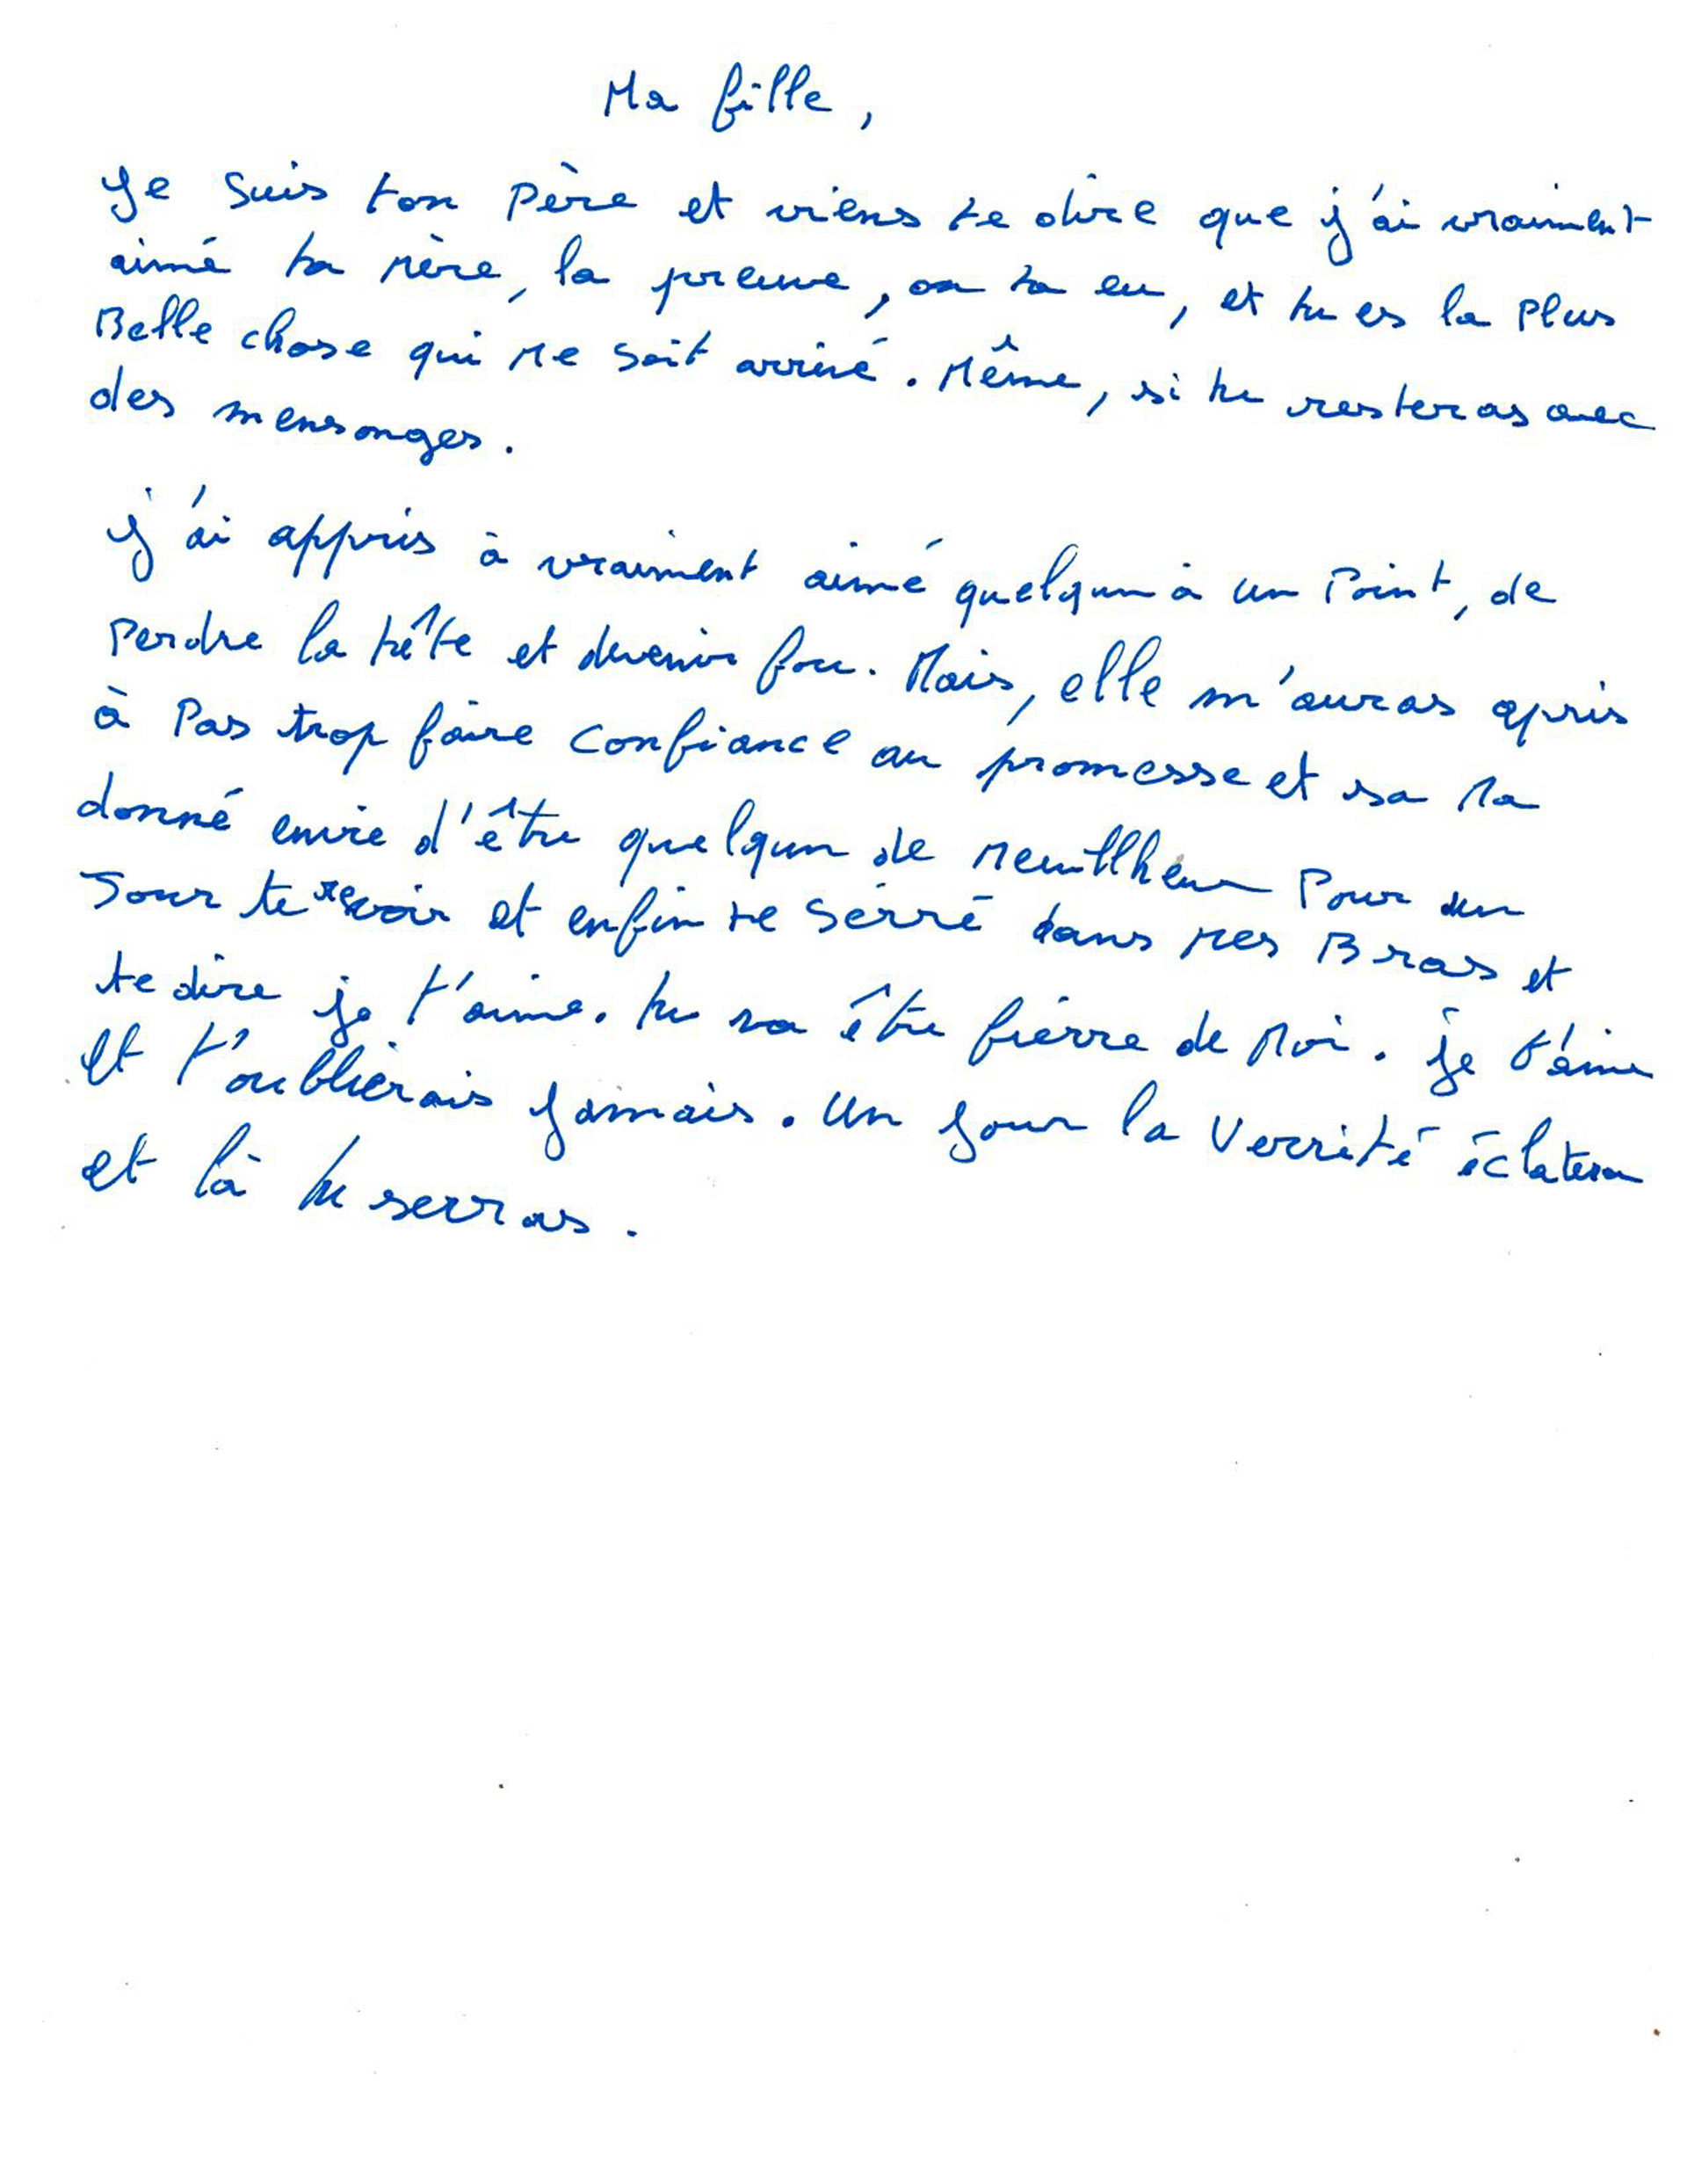 Ma fille,
Je suis ton Père et viens te dire que j'ai vraiment
aimé ta Mère, la preuve, on ta eu, et tu es la Plus
Belle chose qui me soit arrivé. Même, si tu resteras avec
des mensonges.
j'ai appris à vraiment aimé quelqun à un Point, de
Perdre la tête et devenir fou. Mais, elle m'auras apris
à Pas trop faire confiance au promesse et sa ma
donné envie d'être quelqun de Meuillheur Pour un
Jour te revoir et enfin te sérré dans mes Bras et
te dire je t'aime. tu va être fierre de Moi. je t'aime
et t'oublierais jamais. Un jour la Verrité éclatera
et là tu serras.